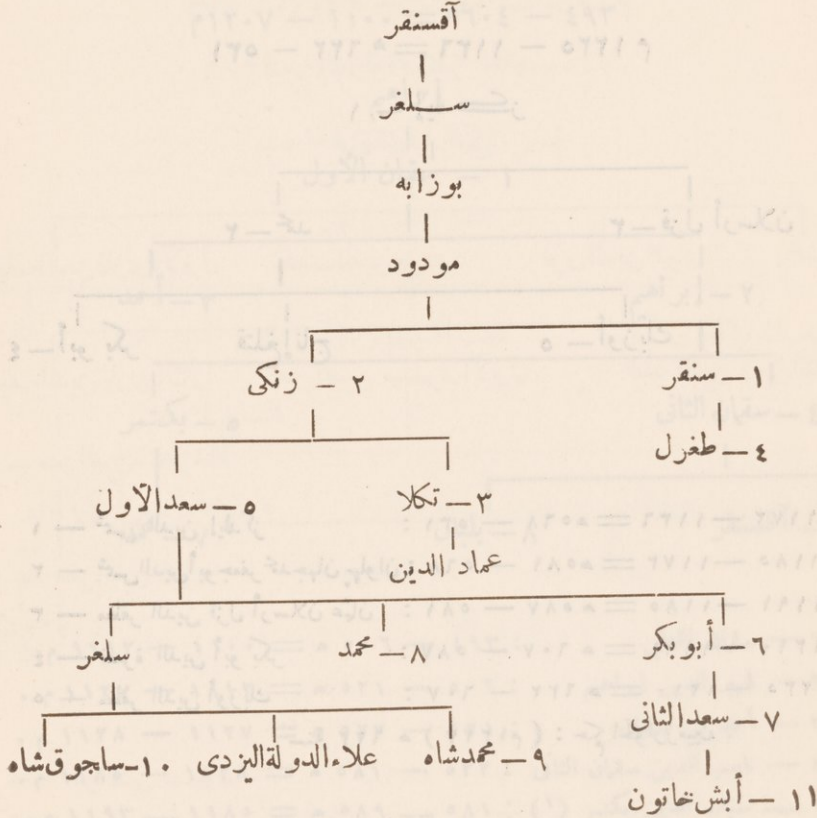 آقسنقر
سلغر
بوزابه
مودود
١ – سنقر
٢ – زنكى
٤ – طغرل
٣ – تكلا
٥ – سعد الأول
عماد الدين
٦ – أبو بكر
٨ – محمد
سلغر
٧ – سعد الثانى
٩ – محمد شاه
علاء الدولة اليزدى
١٠ – سلجوق شاه
١١ – أبش خاتون